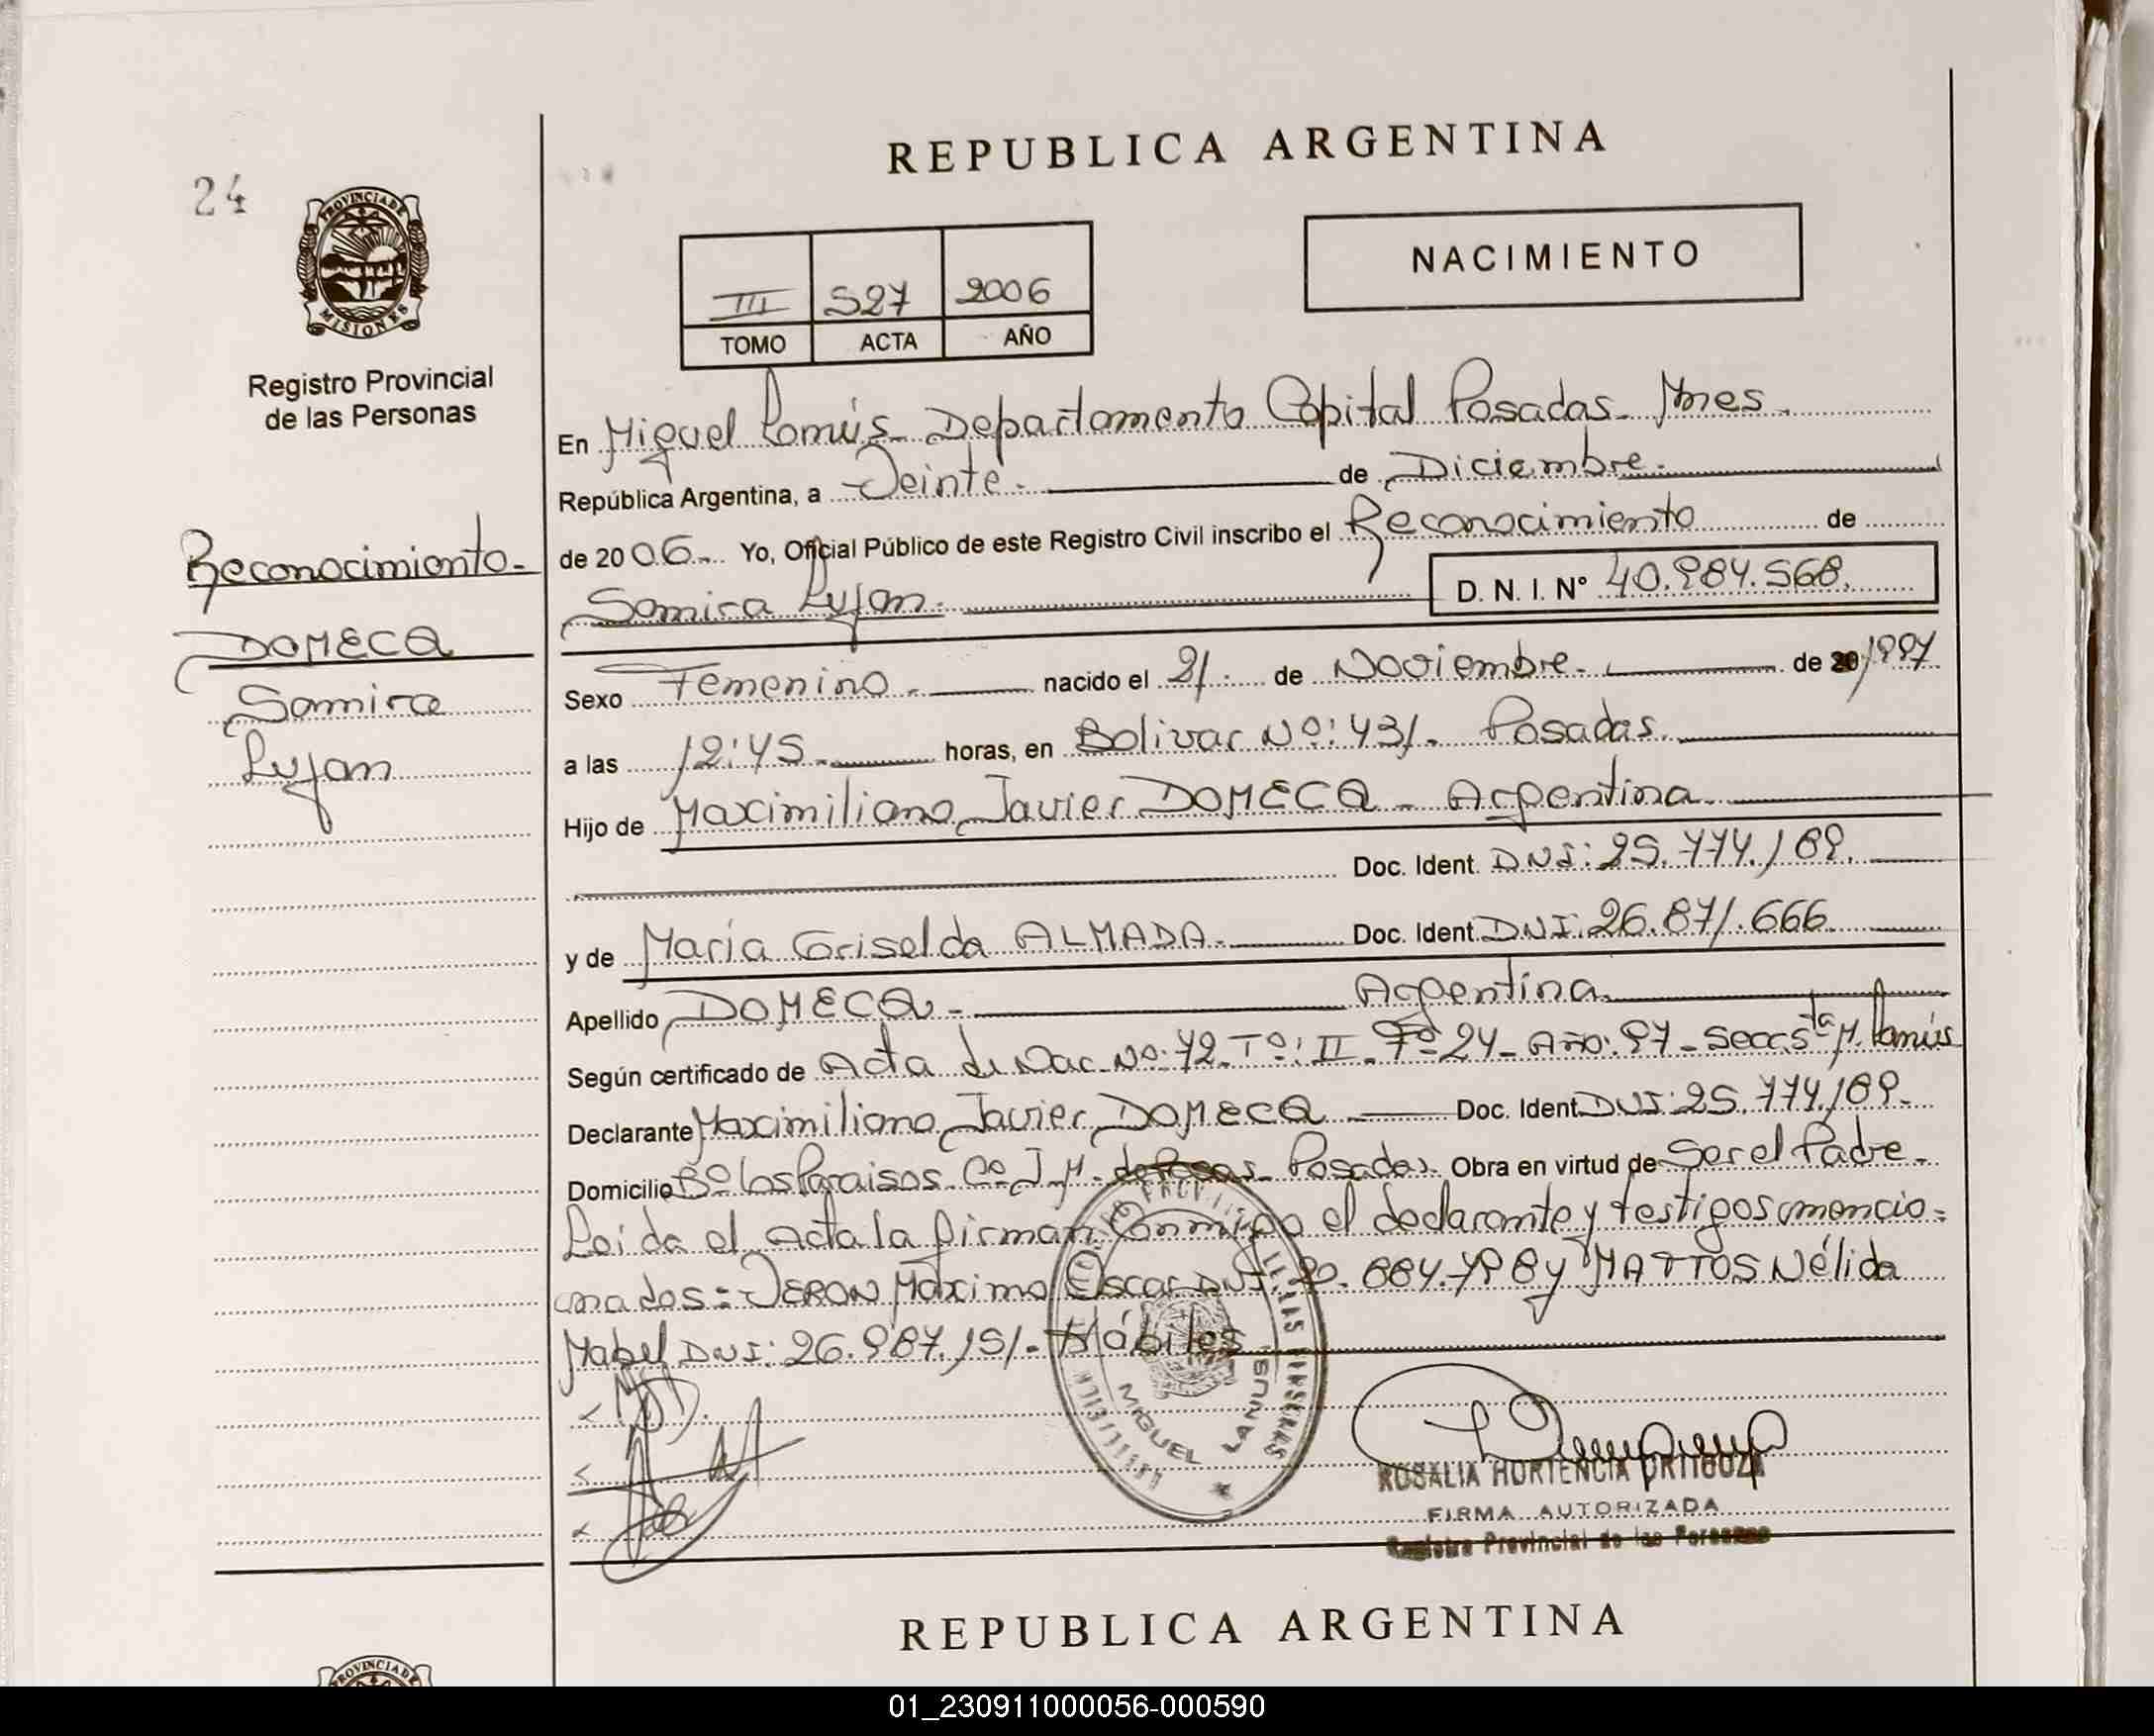 REPUBLICA ARGENTINA
24
PROVINCIA DE
MISIONES
NACIMIENTO
III 527 2006
TOMO ACTA AÑO
Registro Provincial
de las Personas
En Miguel Lanús Departamento Capital Posadas Mnes.
República Argentina, a Veinte. de Diciembre.
de 2006. Yo, Oficial Público de este Registro Civil inscribo el Reconocimiento de
Samira Lujan. D. N. I. Nº 40.984.568.
Reconocimiento-
DOMECQ
Samira
Lujan
Sexo Femenino. nacido el 21. de Noviembre. de 20/1997
a las 12:45. horas, en Bolivar Nº: 431. Posadas.
Hijo de Maximiliano Javier DOMECQ - Argentina
Doc. Ident. DNI: 25.774.189.
y de Maria Griselda ALMADA. Doc. Ident. DNI: 26.871.666
Apellido DOMECQ - Argentina.
Según certificado de Acta de Nac. Nº: 72 Tº: II Fº 24 - Año: 97 - Secc. 5ta M. Lanús
Declarante Maximiliano Javier DOMECQ Doc. Ident. DNI: 25.774.189.
Domicilio Bº Los Paraisos Cº J.M. de Rosas Posadas. Obra en virtud de Ser el Padre.
Leida el Acta la firman conmigo el declarante y testigos mencio=
nados: VERON Máximo Oscar DNI. 20. 884. 798 y MATTOS Nélida
Mabel DNI: 26.987.151.- Hábiles
MIGUEL LANUS
ROSALIA HORTENCIA ORTIGOZA
FIRMA AUTORIZADA
Registro Provincial de las Personas
REPUBLICA ARGENTINA
PROVINCIA DE
01_230911000056-000590